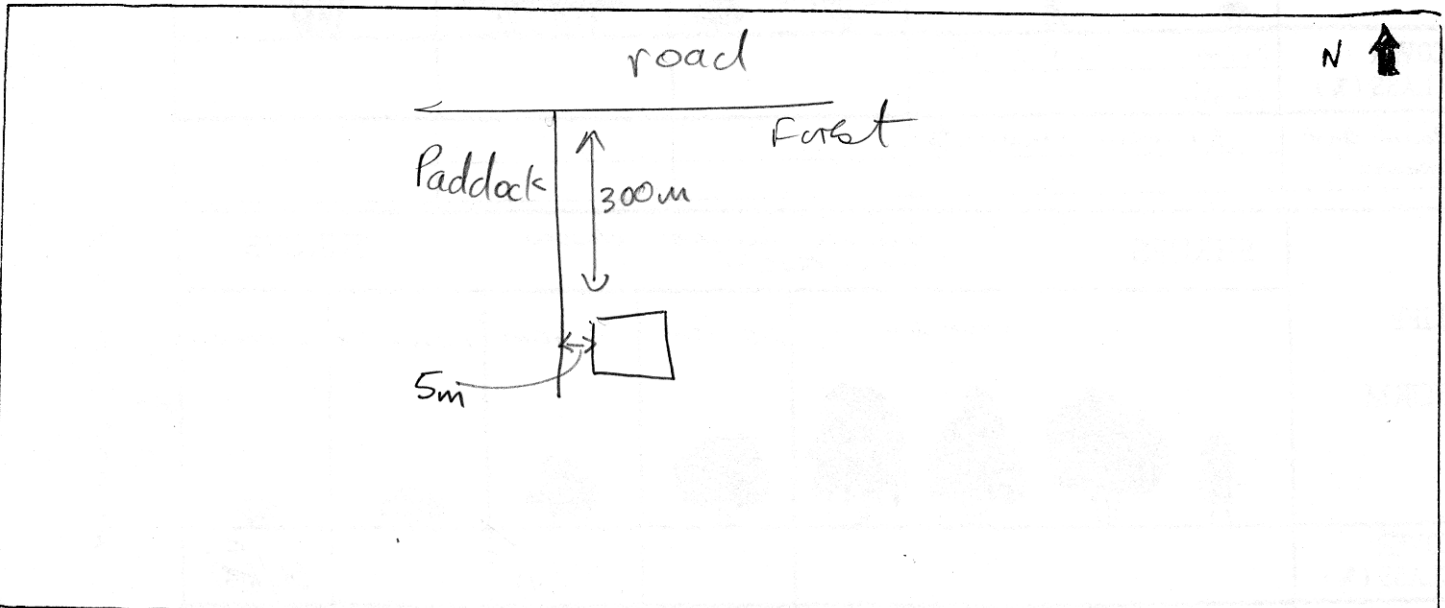 road
N
Forest
Paddock
300m
5m